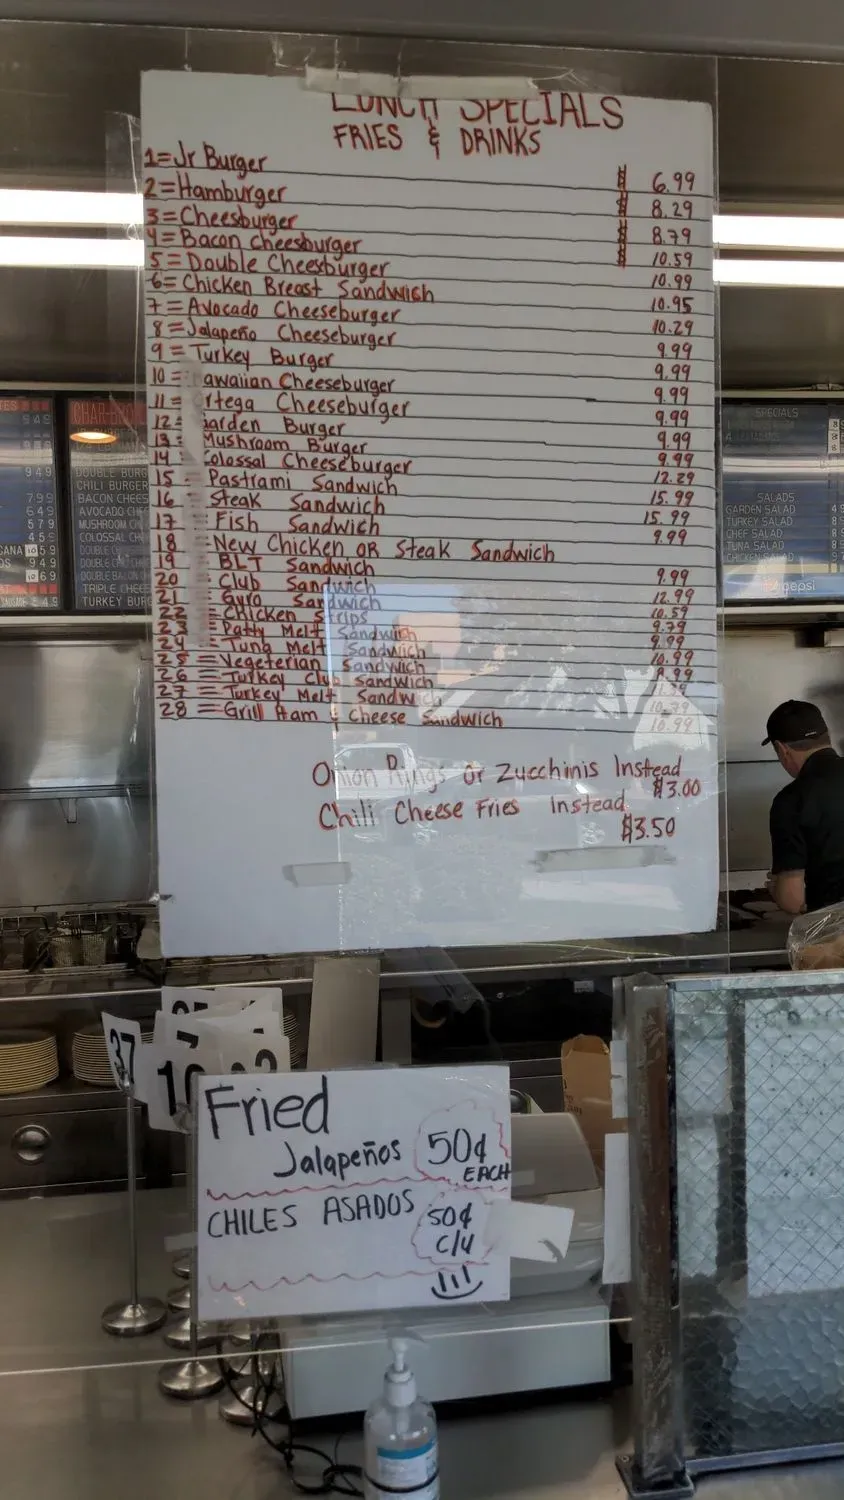 LUNCH SPECIALS
FRIES & DRINKS
1=Jr Burger $ 6.99
2=Hamburger $ 8.29
3=Cheesburger $ 8.79
4=Bacon cheesburger $ 10.59
5=Double Cheesburger 10.99
6=Chicken Breast Sandwich 10.95
7=Avocado Cheeseburger 10.29
8=Jalapeño Cheeseburger 9.99
9=Turkey Burger 9.99
10=awaiian Cheeseburger 9.99
11=rtega Cheeseburger 9.99
12=arden Burger 9.99
13=Mushroom Burger 9.99
14 olossal Cheeseburger 12.29
15=Pastrami Sandwich 15.99
16 Steak Sandwich 15.99
17=Fish Sandwich 9.99
18=New Chicken OR Steak Sandwich
19=BLT Sandwich 9.99
20=Club Sandwich 12.99
21=Gyro Sandwich 10.59
22=Chicken Strips 9.79
23=Patty Melt Sandwich 9.99
24=Tuna Melt Sandwich 10.99
25=Vegeterian Sandwich 8.99
26=Turkey Club Sandwich
27=Turkey Melt Sandwich 10.79
28=Grill Ham & Cheese Sandwich 10.99
Onion Rings or Zucchinis Instead $3.00
Chili Cheese Fries Instead $3.50
949
949
799
579
459
949
CHAR-BRO
DOUBLE BURG
CHILI BURGER
BACON CHEES
AVOCADO CHE
MUSHROOM CH
COLOSSAL CH
DOUBLE
DOUBLE
DOUBLE BACON
TRIPLE CHEES
TURKEY BURG
SPECIALS
SALADS
GARDEN SALAD
TURKEY SALAD
CHEF SALAD
TUNA SALAD
CHICKEN SALAD
pepsi
37
10
Fried
Jalapeños 50¢ EACH
CHILES ASADOS 50¢ C/U